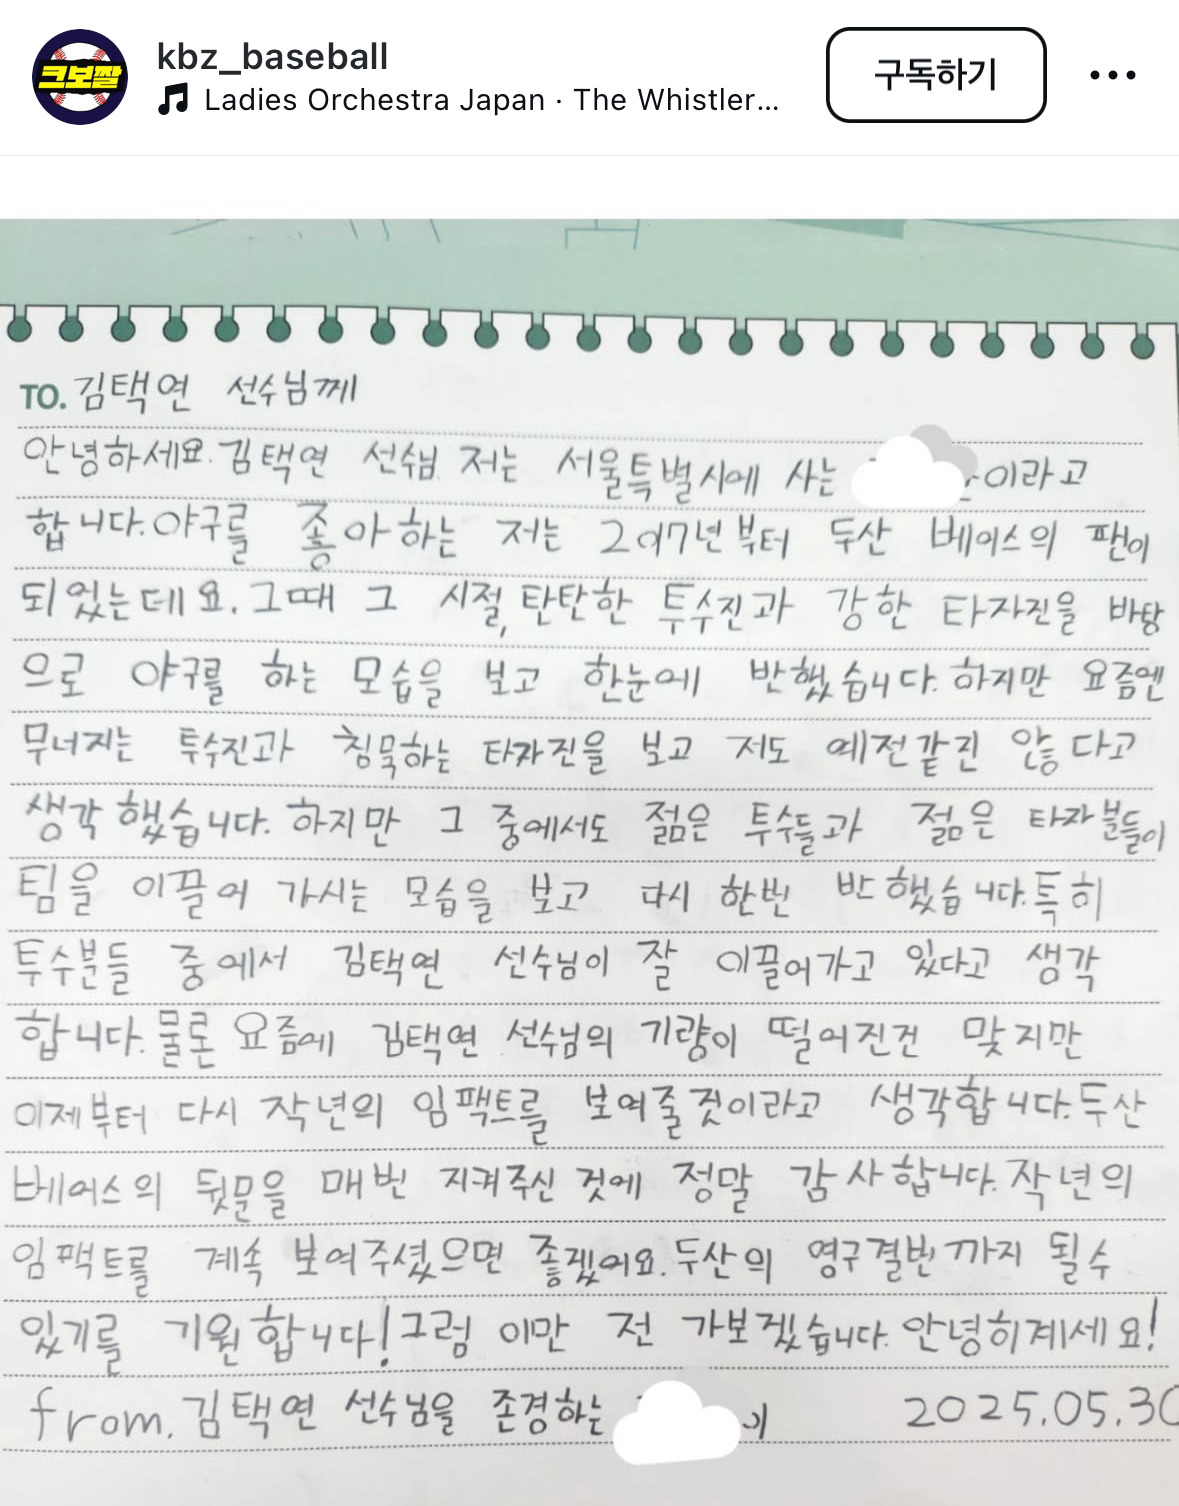 크보짤
kbz_baseball
Ladies Orchestra Japan · The Whistler...
구독하기
TO. 김택연 선수님께
안녕하세요. 김택연 선수님 저는 서울특별시에 사는 이라고
합니다. 야구를 좋아하는 저는 2017년부터 두산 베어스의 팬이
되었는데요. 그때 그 시절, 탄탄한 투수진과 강한 타자진을 바탕
으로 야구를 하는 모습을 보고 한눈에 반했습니다. 하지만 요즘엔
무너지는 투수진과 침묵하는 타자진을 보고 저도 예전같진 않다고
생각했습니다. 하지만 그 중에서도 젊은 투수들과 젊은 타자분들이
팀을 이끌어 가시는 모습을 보고 다시 한번 반했습니다. 특히
투수분들 중에서 김택연 선수님이 잘 이끌어가고 있다고 생각
합니다. 물론 요즘에 김택연 선수님의 기량이 떨어진건 맞지만
이제부터 다시 작년의 임팩트를 보여줄것이라고 생각합니다. 두산
베어스의 뒷문을 매번 지켜주신 것에 정말 감사합니다. 작년의
임팩트를 계속 보여주셨으면 좋겠어요. 두산의 영구결번까지 될수
있기를 기원합니다! 그럼 이만 전 가보겠습니다. 안녕히계세요!
from. 김택연 선수님을 존경하는 이 2025.05.30